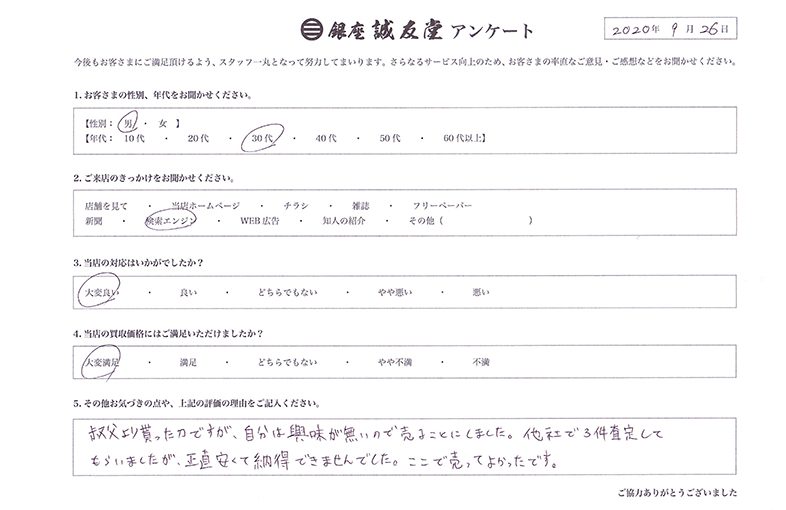 銀座 誠友堂 アンケート
2020年 9月 26日
今後もお客さまにご満足頂けるよう、スタッフ一丸となって努力してまいります。さらなるサービス向上のため、お客さまの率直なご意見・ご感想などをお聞かせください。
1. お客さまの性別、年代をお聞かせください。
【性別： 男 ・ 女 】
【年代： 10代 ・ 20代 ・ 30代 ・ 40代 ・ 50代 ・ 60代以上】
2. ご来店のきっかけをお聞かせください。
店舗を見て ・ 当店ホームページ ・ チラシ ・ 雑誌 ・ フリーペーパー
新聞 ・ 検索エンジン ・ WEB広告 ・ 知人の紹介 ・ その他（ ）
3. 当店の対応はいかがでしたか？
大変良い ・ 良い ・ どちらでもない ・ やや悪い ・ 悪い
4. 当店の買取価格にはご満足いただけましたか？
大変満足 ・ 満足 ・ どちらでもない ・ やや不満 ・ 不満
5. その他お気づきの点や、上記の評価の理由をご記入ください。
叔父より貰った刀ですが、自分は興味が無いので売ることにしました。他社で3件査定して
もらいましたが、正直安くて納得できませんでした。ここで売ってよかったです。
ご協力ありがとうございました